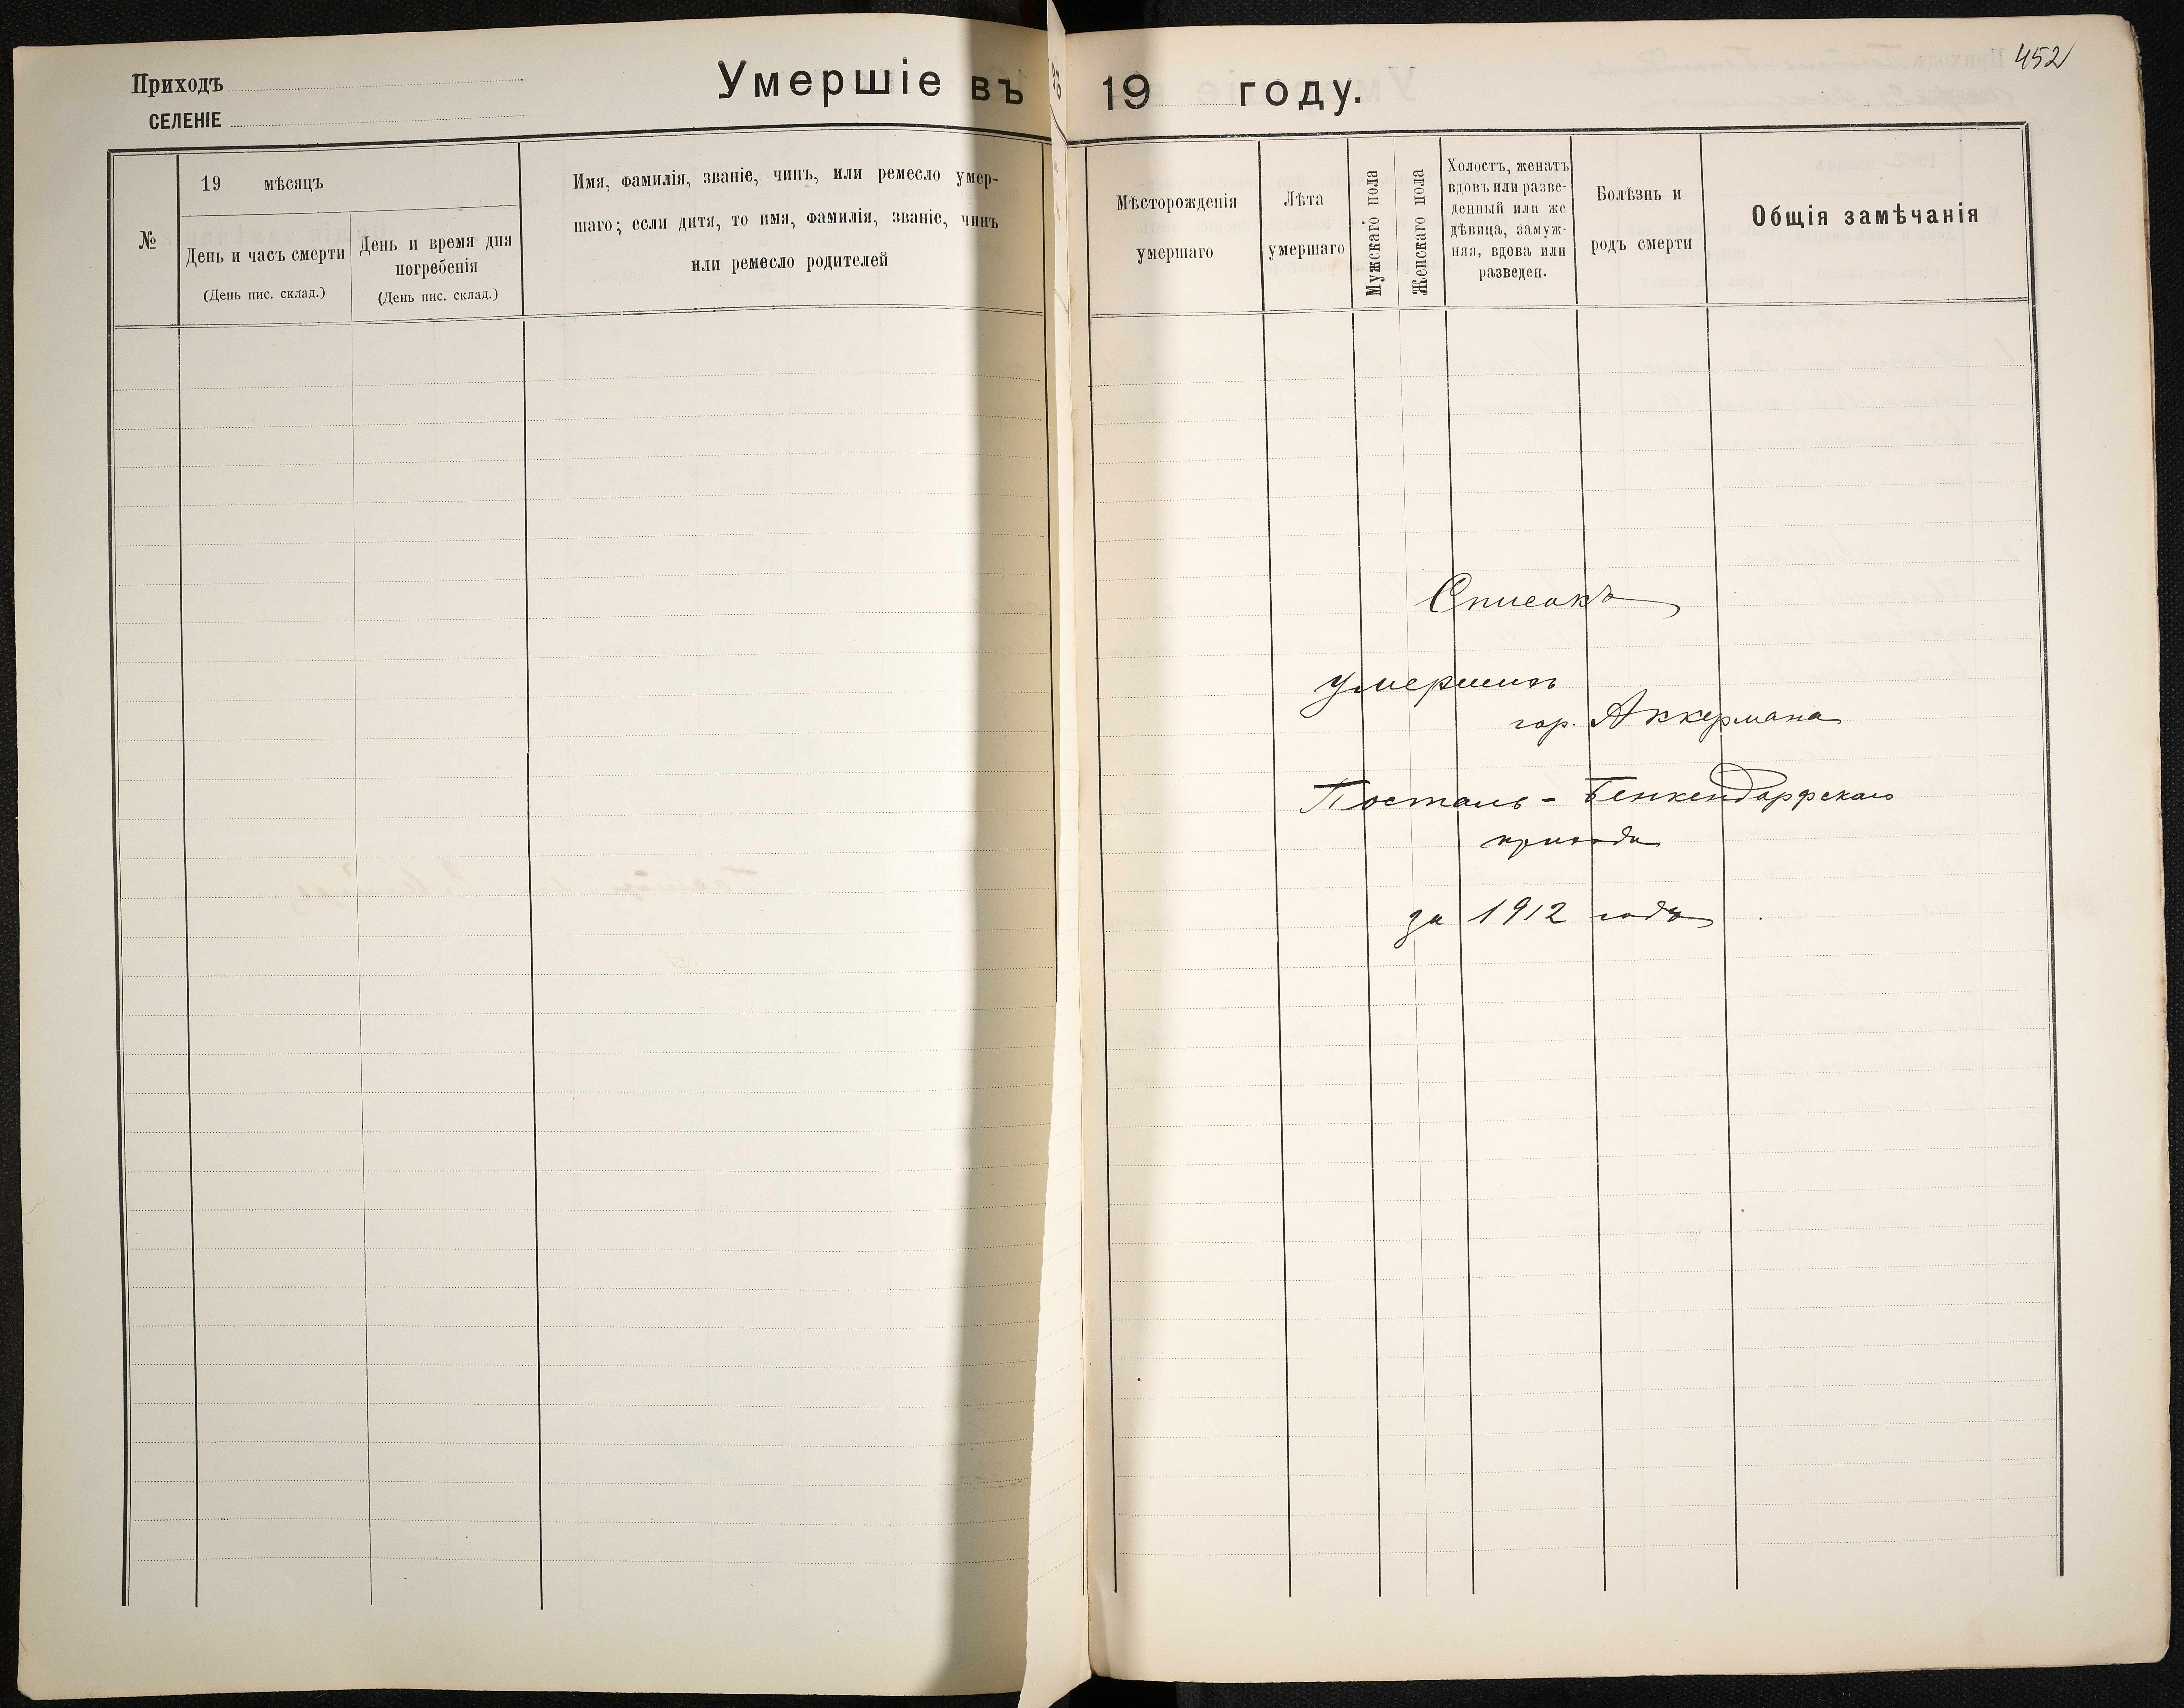 452
Приходъ
СЕЛЕНІЕ
Умершіе въ 19 году.
№
19 мѣсяцъ
День и часъ смерти
(День пис. склад.)
День и время дня
погребенія
(День пис. склад.)
Имя, фамилія, званіе, чинъ, или ремесло умер-
шаго; если дитя, то имя, фамилія, званіе, чинъ
или ремесло родителей
Мѣсторожденія
умершаго
Лѣта
умершаго
Мужскаго пола
Женскаго пола
Холостъ, женатъ
вдовъ или разве-
денный или же
дѣвица, замуж-
няя, вдова или
разведен.
Болѣзнь и
родъ смерти
Общія замѣчанія
Списокъ
умершихъ
гор. Аккермана
Посталь-Бенкендорфскаго
прихода
за 1912 годъ